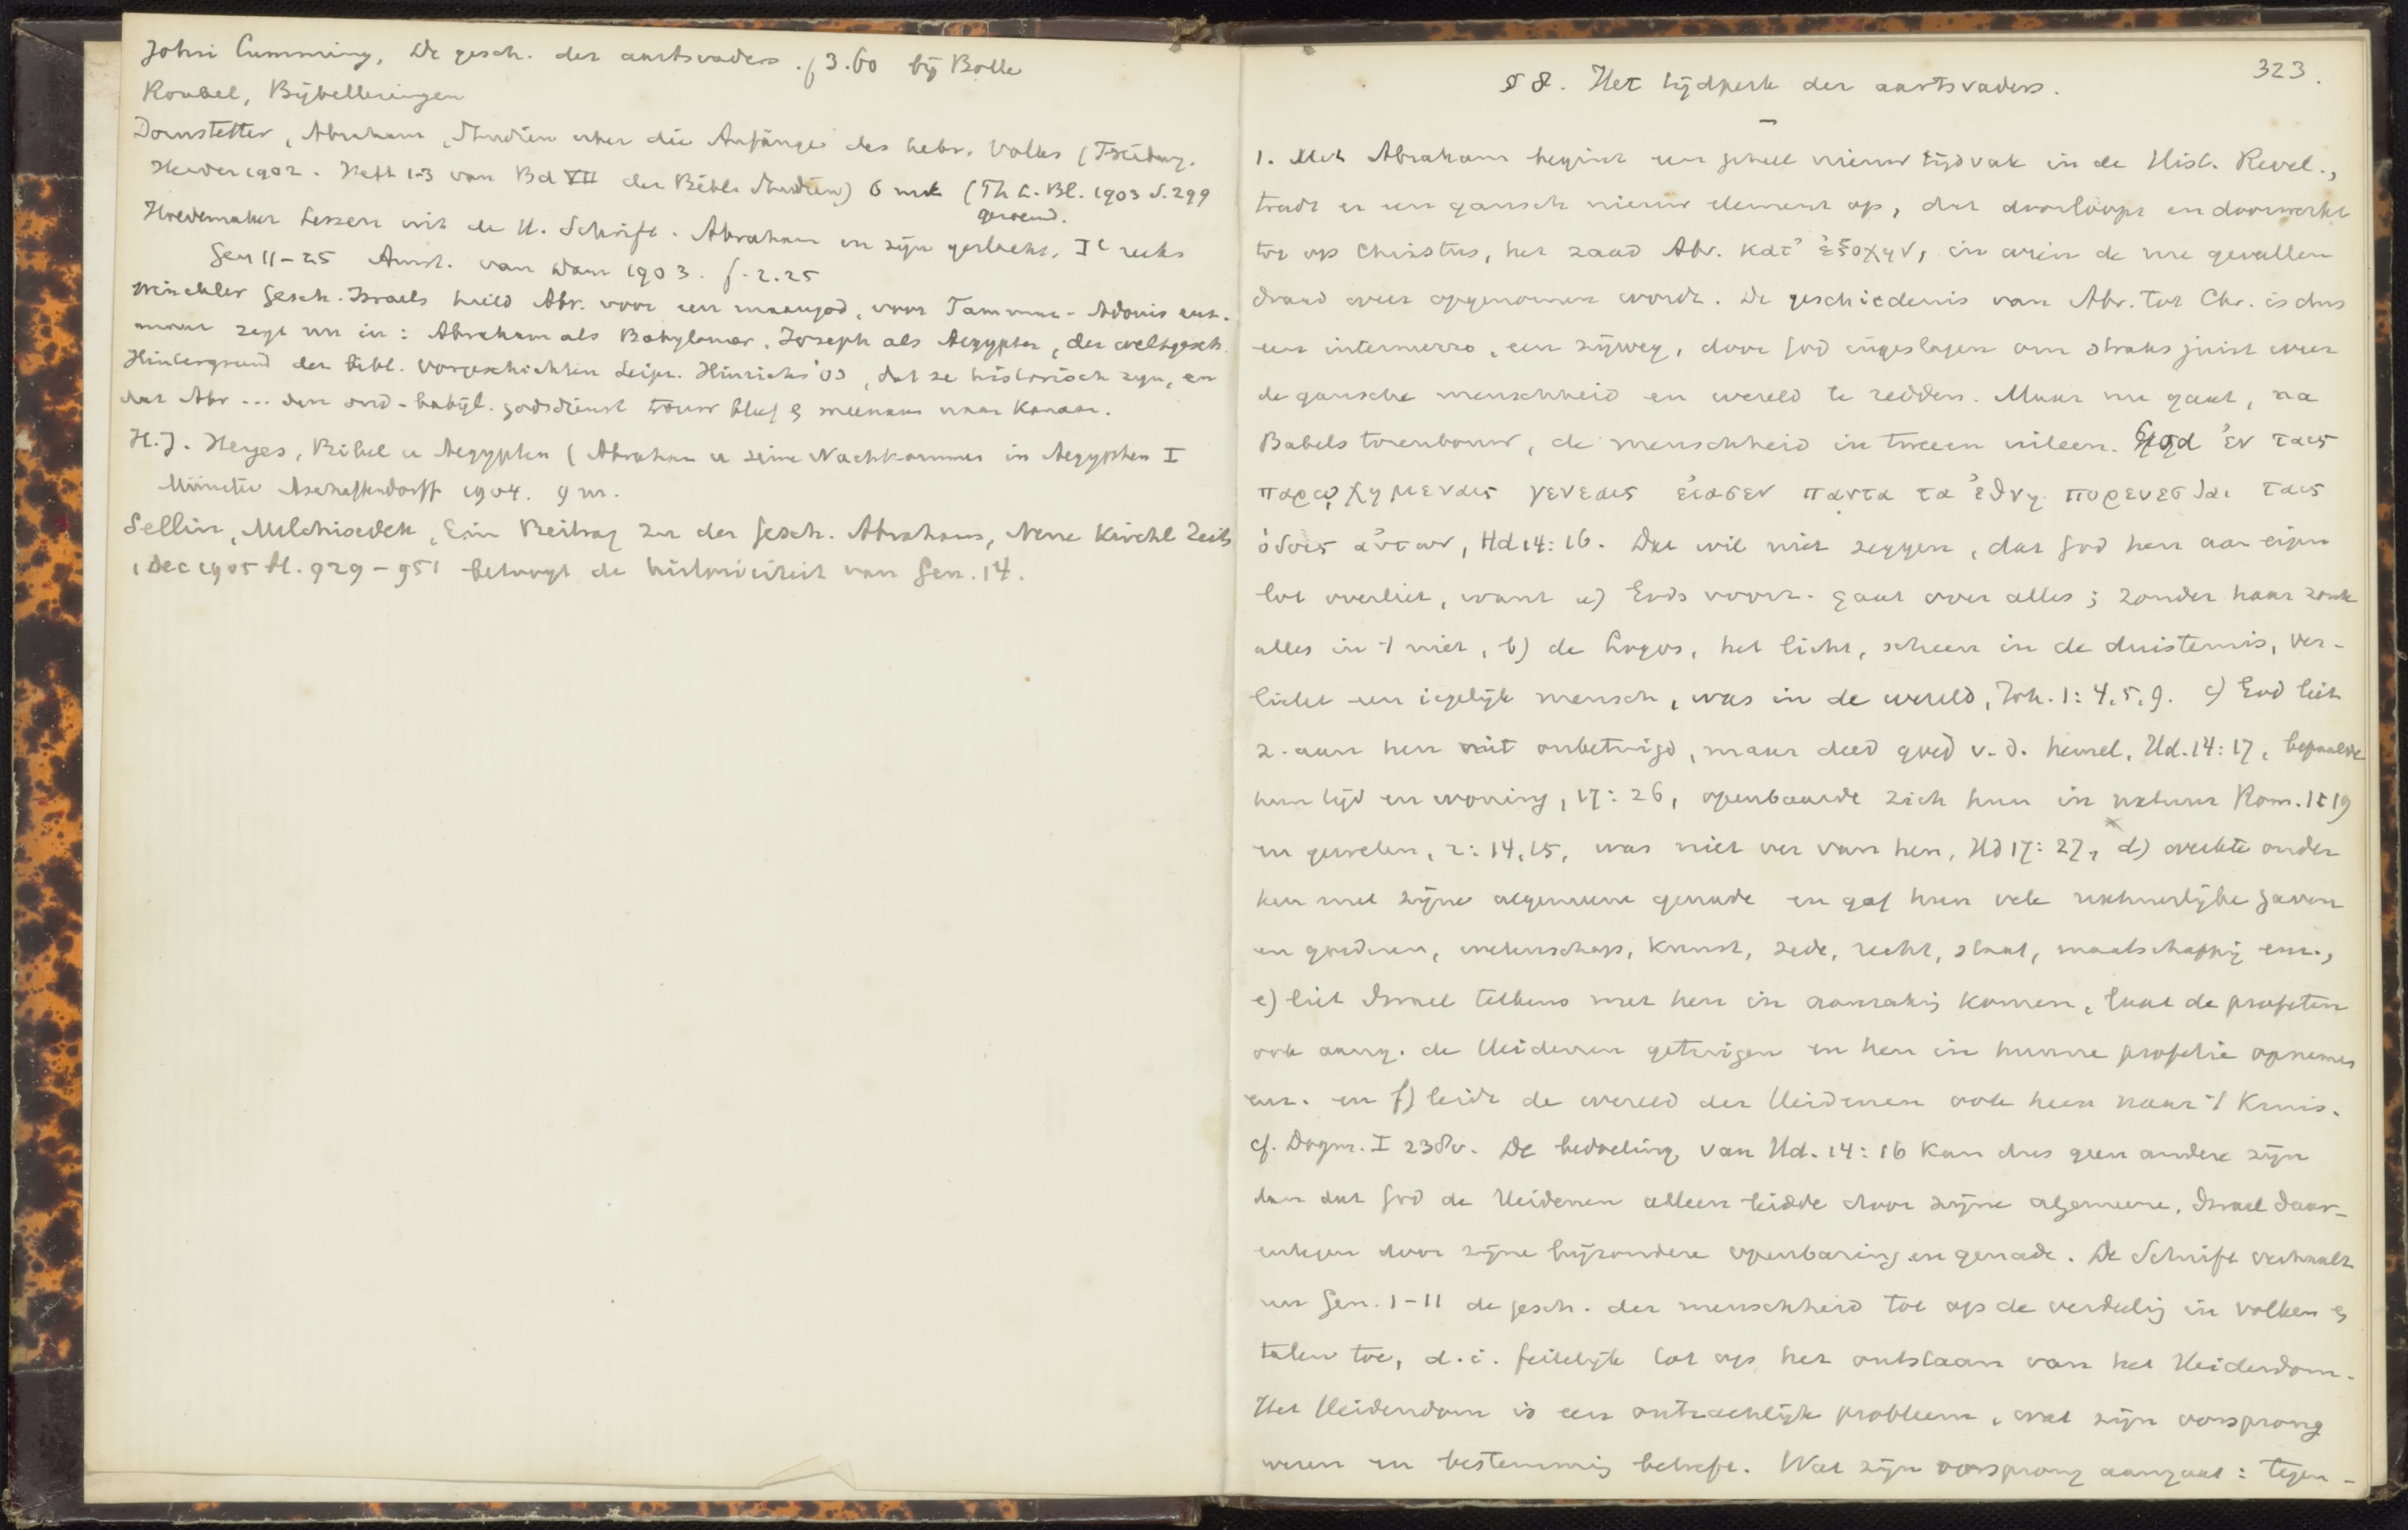 John Cumming, De gesch. der aartsvaders. f 3.60 bij Bolle
Knabel, Bijbellezingen
Dornstetter, Abraham, Studien über die Anfänge des hebr. Volkes (Freiburg.
Herder 1902. Heft 1-3 von Bd VII der Bibl. Studien) 6 mrk (Th. L. Bl. 1903 S. 299
geroemd.
Hoedemaker Lessen uit de H. Schrift. Abraham en zijn geslacht. Ie reeks
Gen 11-25 Amst. van Dam 1903. f. 2.25
Winckler Gesch. Israels hield Abr. voor een maangod, voor Tammuz-Adonis enz.
maar zegt nu in: Abraham als Babylonier, Joseph als Aegypter, der weltgesch.
Hintergrund der bibl. Vorgeschichten Leipz. Hinrichs '03, dat ze historisch zijn, en
dat Abr ... den oud-babyl. godsdienst trouw bleef & meenam naar Kanaan.
H.J. Heyes, Bibel u Aegypten (Abraham u seine Nachkommen in Aegypten I
Münster Aschaffendorff 1904. 9 m.
Sellin, Melchisedek, Ein Beitrag zu der Gesch. Abrahams, Neue Kirchl Zeits
, Dec 1905 bl. 929-951 betoogt de historiciteit van Gen. 14.
323.
§ 8. Het tijdperk der aartsvaders.
1. Met Abraham begint een geheel nieuw tijdvak in de Hist. Revel.,
treedt er een gansch nieuw element op, dat doorloopt en doorwerkt
tot op Christus, het zaad Abr. κατ' ἐξοχην, in wien de nu gevallen
draad weer opgenomen wordt. De geschiedenis van Abr. tot Chr. is dus
een intermezzo, een zijweg, door God ingeslagen om straks juist weer
de gansche menschheid en wereld te redden. Maar nu gaat, na
Babels torenbouw, de menschheid in tweeen uiteen. God ἐν ταις
παρῳχημεναις γενεαις εἰασεν παντα τα ἐθνη πορευεσθαι ταις
ὁδοις αὐτων, Hd 14:16. Dat wil niet zeggen, dat God hen aan eigen
lot overliet, want a) Gods voorz. gaat over alles; zonder haar zonk
alles in 't niet, b) de Logos, het licht, scheen in de duisternis, ver-
licht een iegelijk mensch, was in de wereld, Joh. 1:4,5,9. c) God liet
z. aan hen niet onbetuigd, maar deed goed v. d. hemel, Hd. 14:17, bepaalde
hun tijd en woning, 17:26, openbaarde zich hun in natuur Rom. 1:19
en geweten, 2:14,15, was niet ver van hen, Hd 17:27, d) werkte onder
hen met zijne algemeene genade en gaf hun vele natuurlijke gaven
en goederen, wetenschap, kunst, zede, recht, staat, maatschappij enz.,
e) liet Israel telkens met hen in aanraking komen, laat de profeten
ook aang. de Heidenen getuigen en hen in hunne profetie opnemen
enz. en f) leidt de wereld der Heidenen ook heen naar 't Kruis.
cf. Dogm. I 238v. De bedoeling van Hd. 14:16 kan dus geen andere zijn
dan dat God de Heidenen alleen leidde door zijne algemeene, Israel daar-
entegen door zijne bijzondere openbaring en genade. De Schrift verhaalt
nu Gen. 1-11 de gesch. der menschheid tot op de verdeeling in volken &
talen toe, d.i. feitelijk tot op het ontstaan van het Heidendom.
Het Heidendom is een ontzachlijk probleem, wat zijn oorsprong
wezen en bestemming betreft. Wat zijn oorsprong aangaat: tegen-